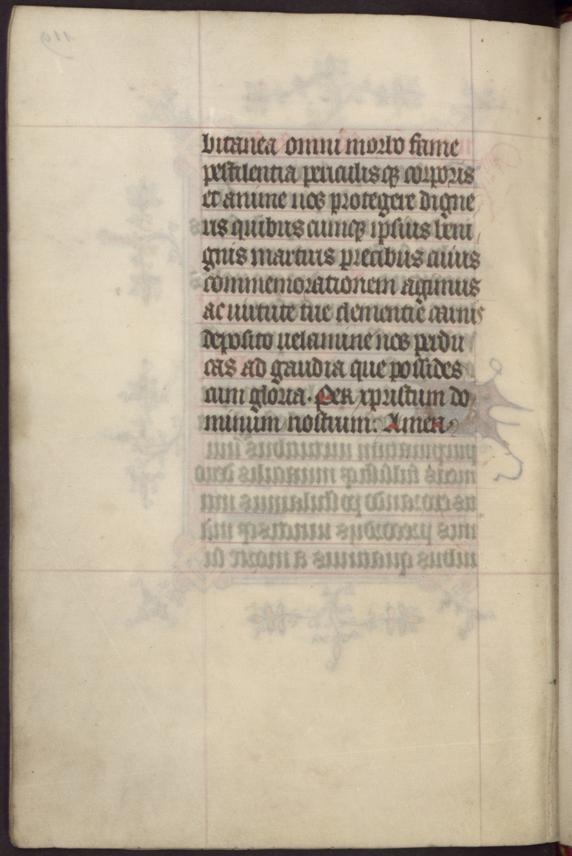 bitanea omni morbo fame
pestilentia periculisqꝫ corporis
et anime nos protegere digne
ris quibus cumqꝫ ipsius beni
gnis martiris precibus cuius
commemorationem agimus
ac uirtute tue clementie carnis
deposito uelamine nos perdu
cas ad gaudia que possides
cum gloria. Per xpristum do
minum nostrum. Amen